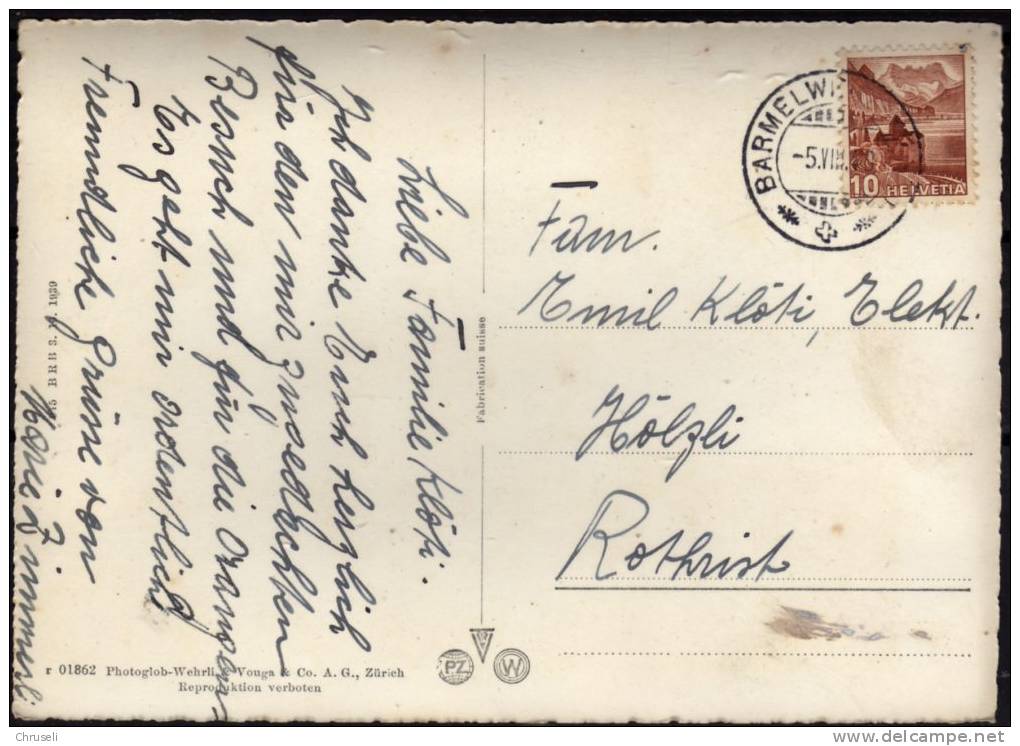 Liebe Familie Klöti.
Ich danke Euch herzlich
für den mir zugedachten
Besuch und für die Orangen.
Es geht mir ordentlich
Freundliche Grüsse von
Marie Zimmerli
BRB 3. 10. 1939
Fabrication suisse
r 01862 Photoglob-Wehrli & Vouga & Co. A. G., Zürich
Reproduktion verboten
PZ
W
BARMELW
-5.VIII.
10 HELVETIA
Fam.
Emil Klöti, Elekt.
Hölzli
Rothrist
Chruseli
www.delcampe.net